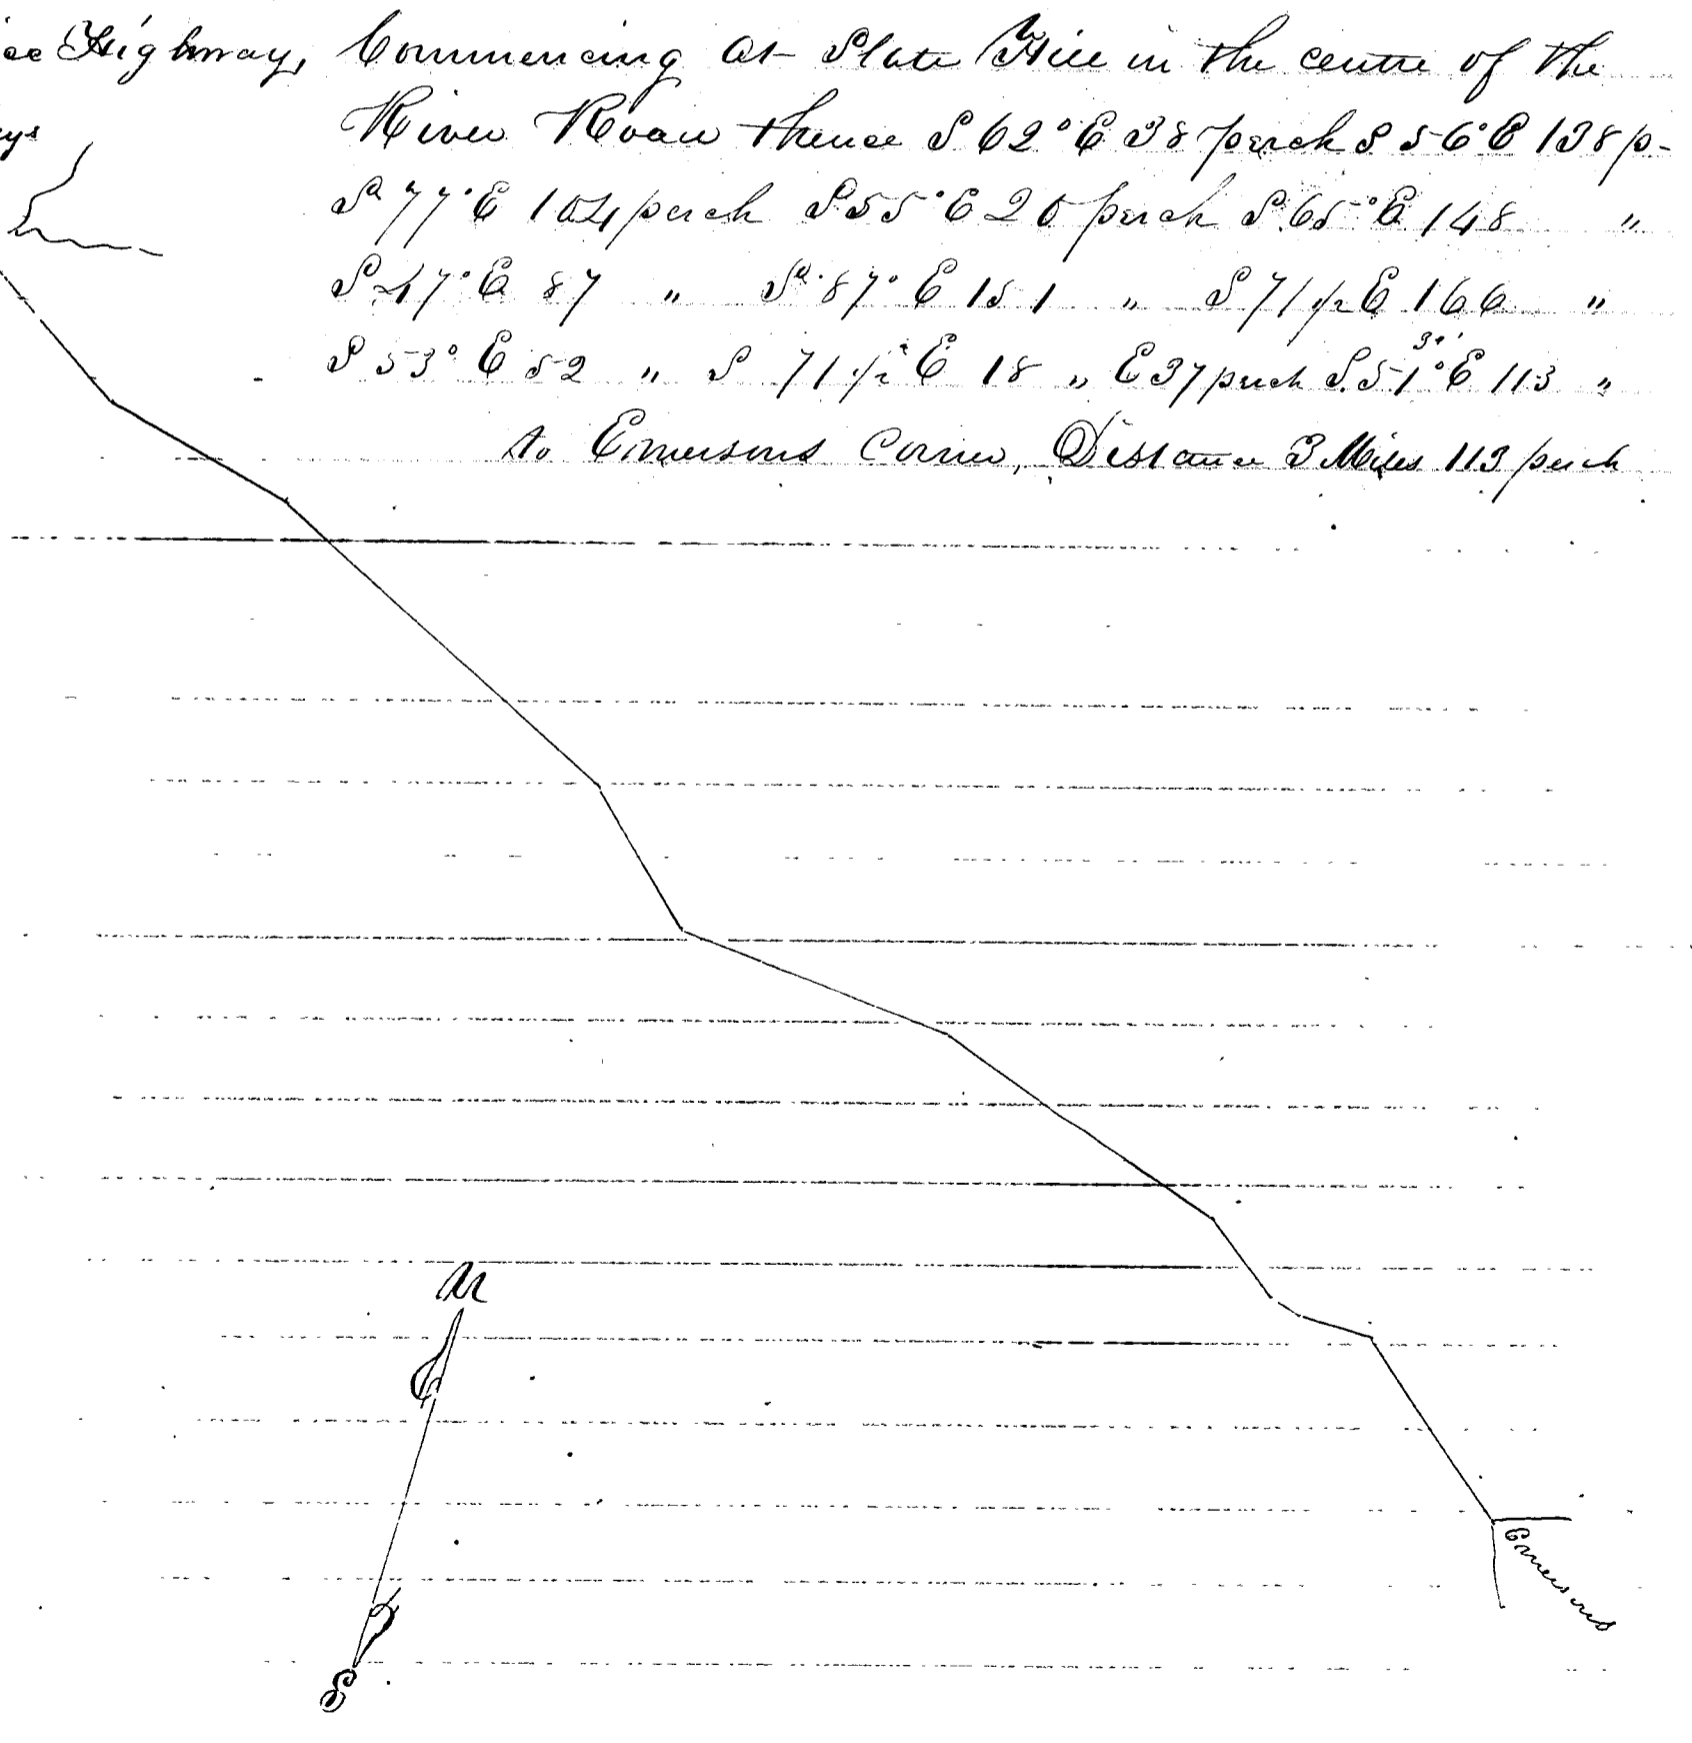 Highway, Commencing at Slate Hill in the centre of the
River Road thence S 62° E 38 perch S 56° E 138 p-
ys
S 77° E 104 perch S 55° E 20 perch S 65° E 148 "
S 47° E 87 " S 87° E 151 " S 71 1/2 E 166 "
S 53° E 52 " S 71 1/2° E 18 " E 37 perch S 51° 30' E 113 "
to Emersons Corner, Distance 3 Miles 113 perch
N
S
Emersons